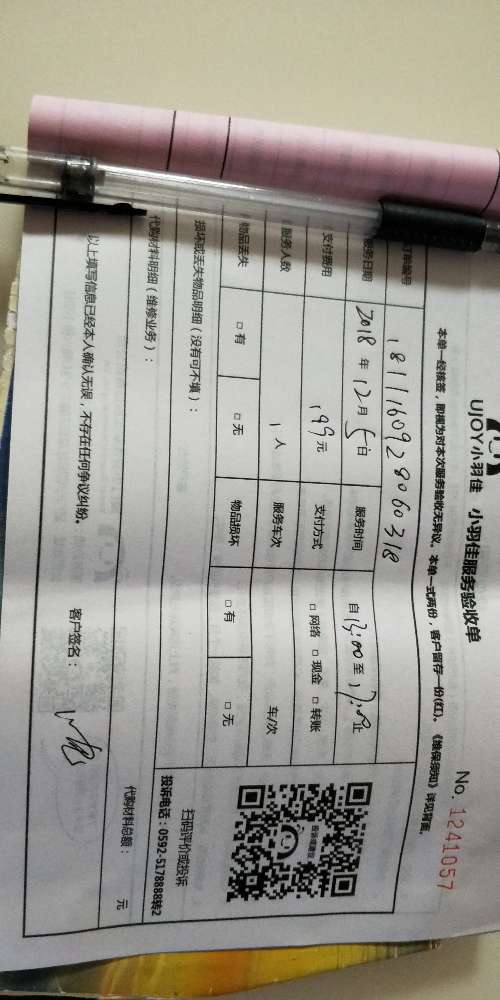 UJOY小羽佳 小羽佳服务验收单
No. 1241057
本单一经接签，即视为对本次服务验收无异议。本单一式两份，客户留存一份(红)。《维保须知》详见背面。
订单编号 181116092806 0318
服务日期 2018 年 12 月 5 日 服务时间 自 13:00 至 17:00 止
支付费用 199 元 支付方式 □ 网络 □ 现金 □ 转账
服务人数 1 人 服务车次 车/次
物品丢失 □ 有 □ 无 物品损坏 □ 有 □ 无
损坏或丢失物品明细（没有可不填）：
投诉或建议
扫码评价或投诉
投诉电话：0592-5178888转2
代购材料明细（维修业务）：
代购材料总额： 元
以上填写信息已经本人确认无误，不存在任何争议纠纷。
客户签名：